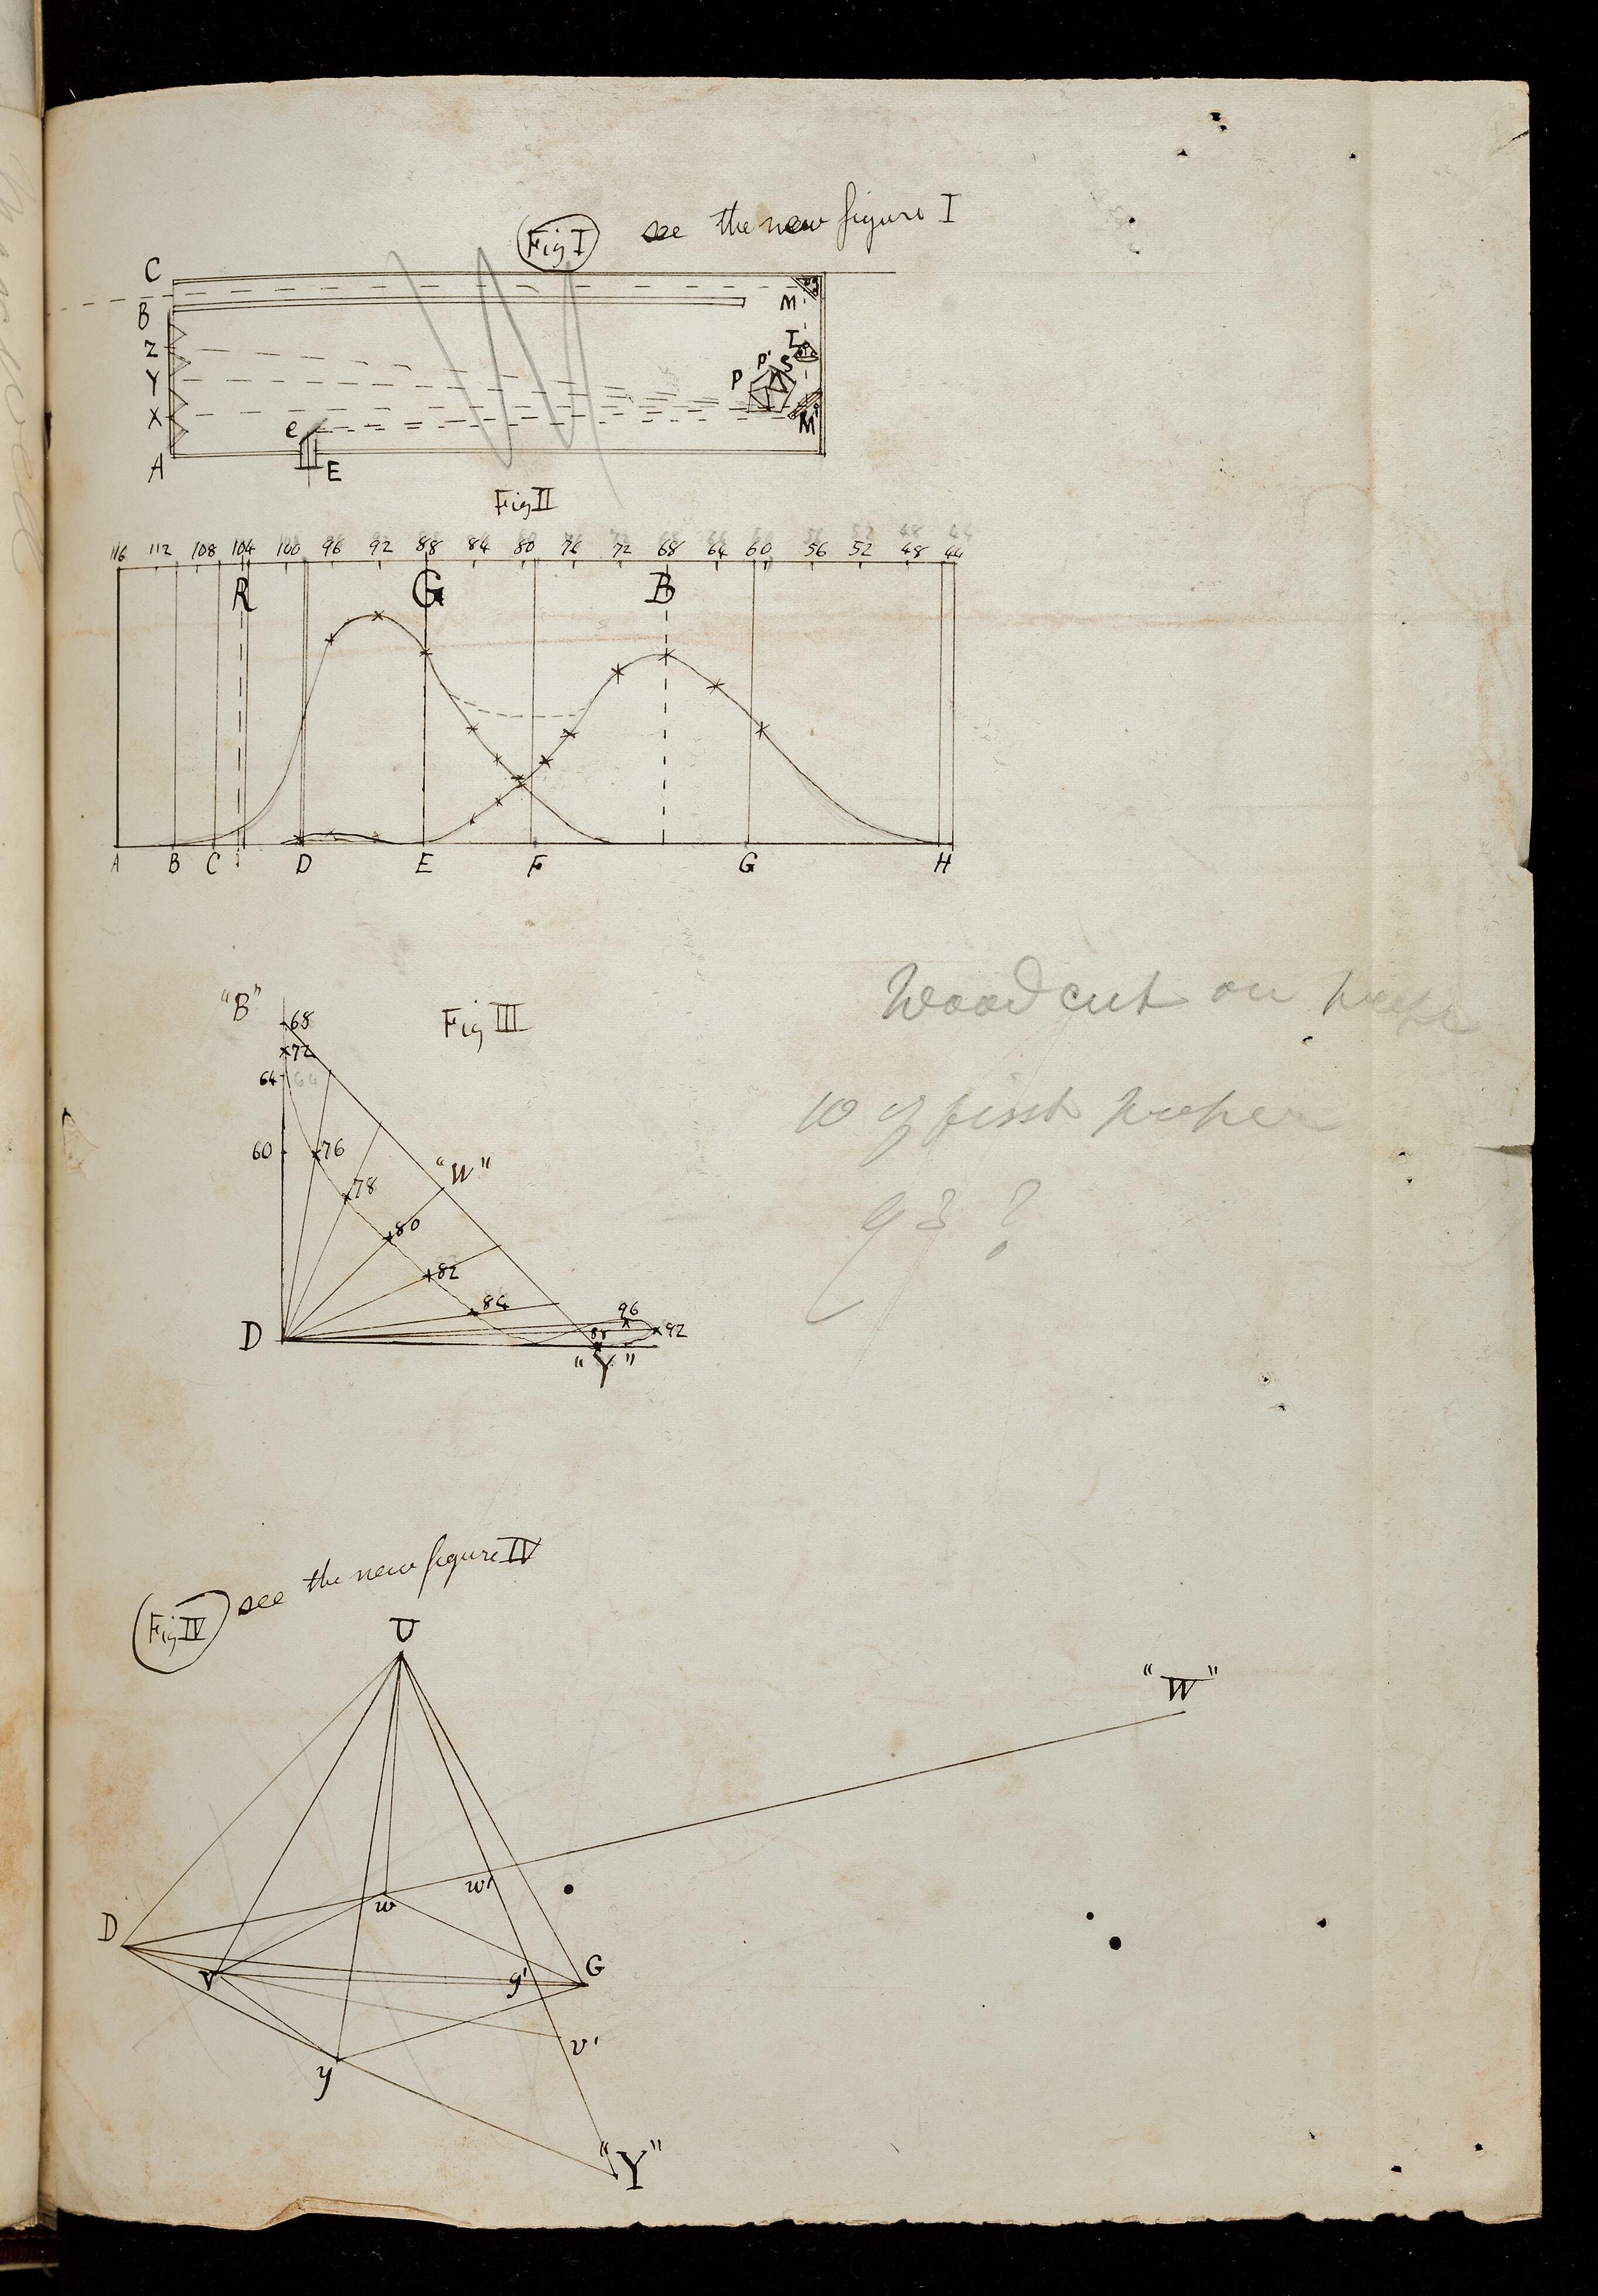 Fig I see the new figure I
C
B
Z
Y
X
A
e
E
M
I
P' S
P
M'
Fig II
116 112 108 104 100 96 92 88 84 80 76 72 68 64 60 56 52 48 44
R G B
A B C D E F G H
"B"
Fig III
68
72
64 64
60 76
78
"W"
80
82
84
96
D 88 92
"Y"
Woodcut on
10 of first
93 ?
Fig IV see the new figure IV
U
"W"
w w'
D
v g' G
v'
y
"Y"